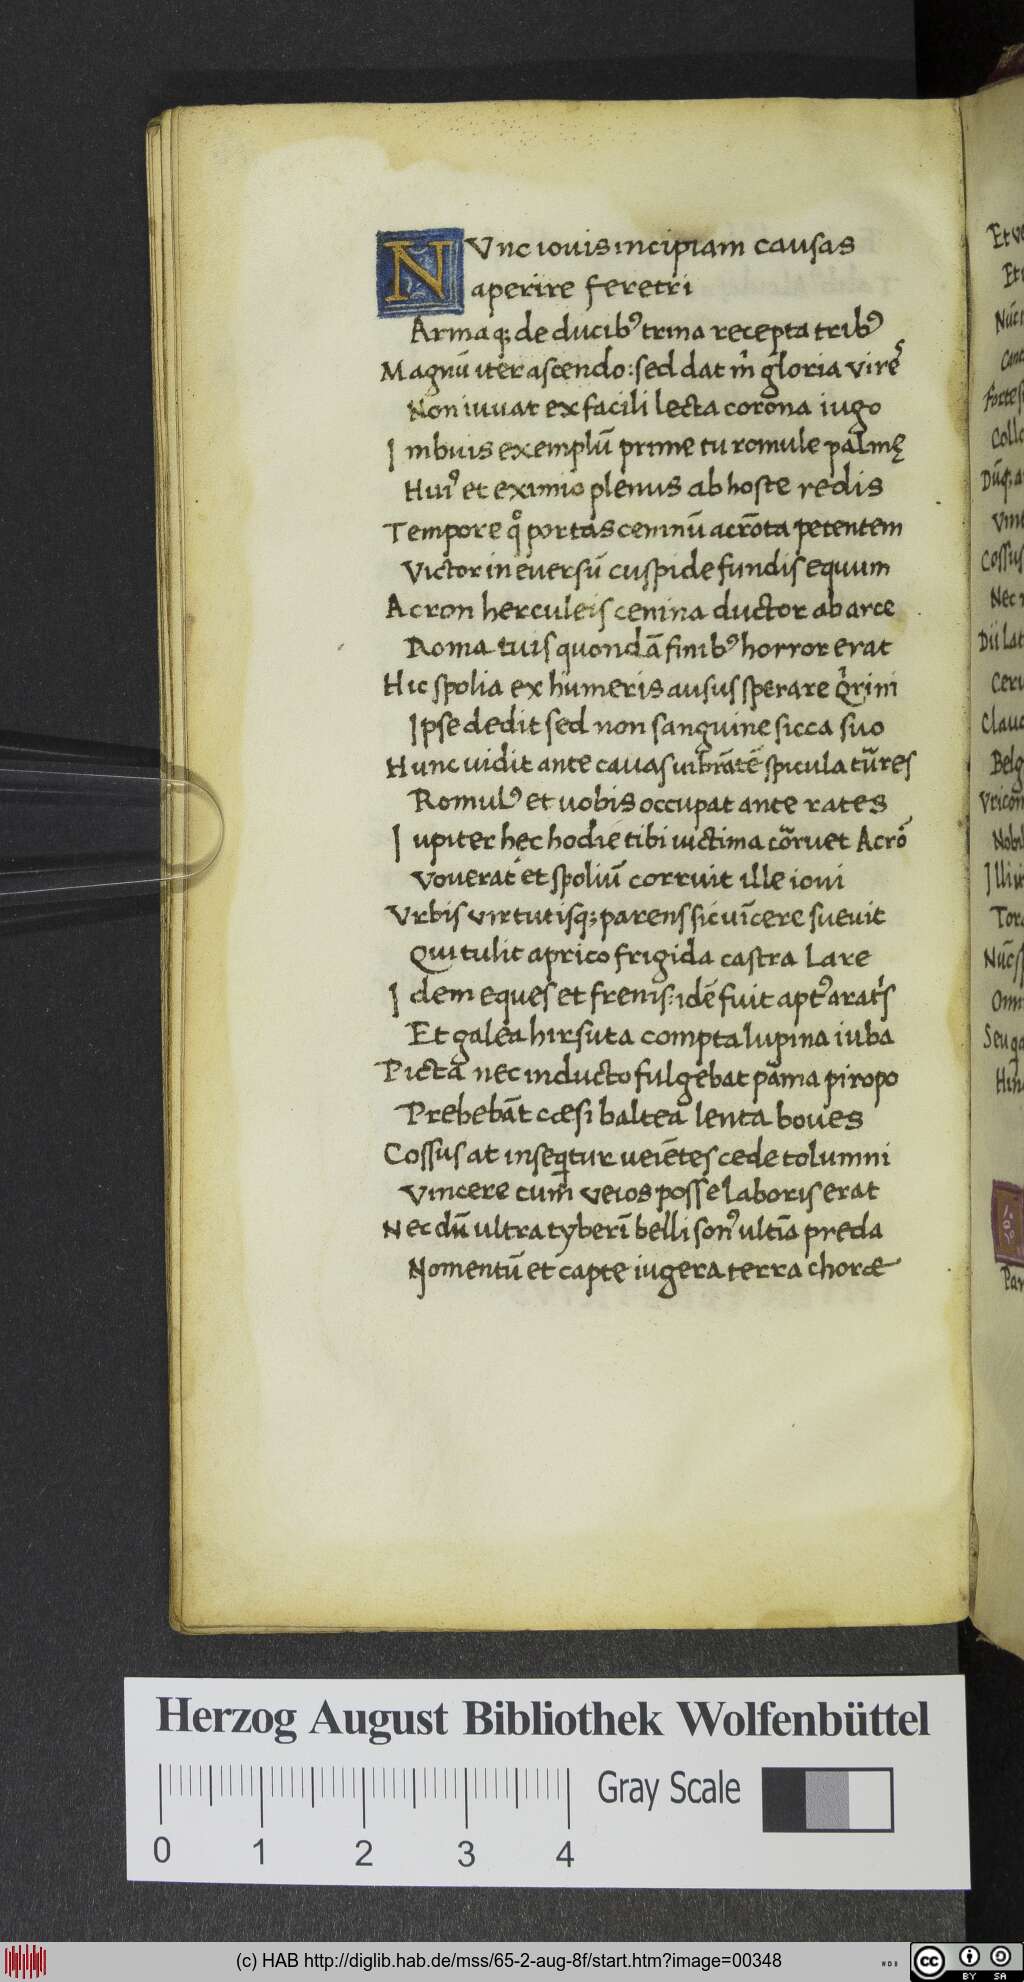 NVnc iouis incipiam causas
aperire feretri
Armaq; de ducibꝰ trina recepta tribꝰ
Magnū iter ascendo: sed dat m̄ gloria vireˢ
Non iuuat ex facili lecta corona iugo
Inbuis exemplū prime tu romule palmę
Huiꝰ et eximio plenus ab hoste redis
Tempore qͦ portas ceninū acrōta petentem
Victor in euersū cuspide fundis equum
Acron herculeis cenina ductor ab arce
Roma tuis quondā finibꝰ horror erat
Hic spolia ex humeris ausus sperare Qͥrini
Ipse dedit sed non sanguine sicca suo
Hunc uidit ante cauas uibrātē spicula turres
Romulꝰ et uobis occupat ante rates
Iupiter hęc hodie tibi uictima corruet Acrō
Vouerat et spoliū corruit ille ioui
Vrbis virtutisq; parens sic uīcere sueuit
Qui tulit aprico frigida castra Lare
Idem eques et frenis: idē fuit aptꝰ aratͥs
Et galea hirsuta compta lupina iuba
Picta nec inducto fulgebat pama piropo
Prebebāt cæsi baltea lenta boues
Cossus at inseqͥtur ueiētes cede tolumni
Vincere cum veios posse laboris erat
Nec dū ultra tyberī belli sonꝰ ultīa preda
Nomentū et capte iugera terra choræ
Herzog August Bibliothek Wolfenbüttel
0 1 2 3 4
Gray Scale
(c) HAB http://diglib.hab.de/mss/65-2-aug-8f/start.htm?image=00348
WDB
cc BY SA